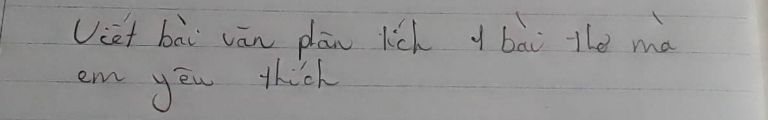 Viết bài văn phân tích 1 bài thơ mà
em yêu thích